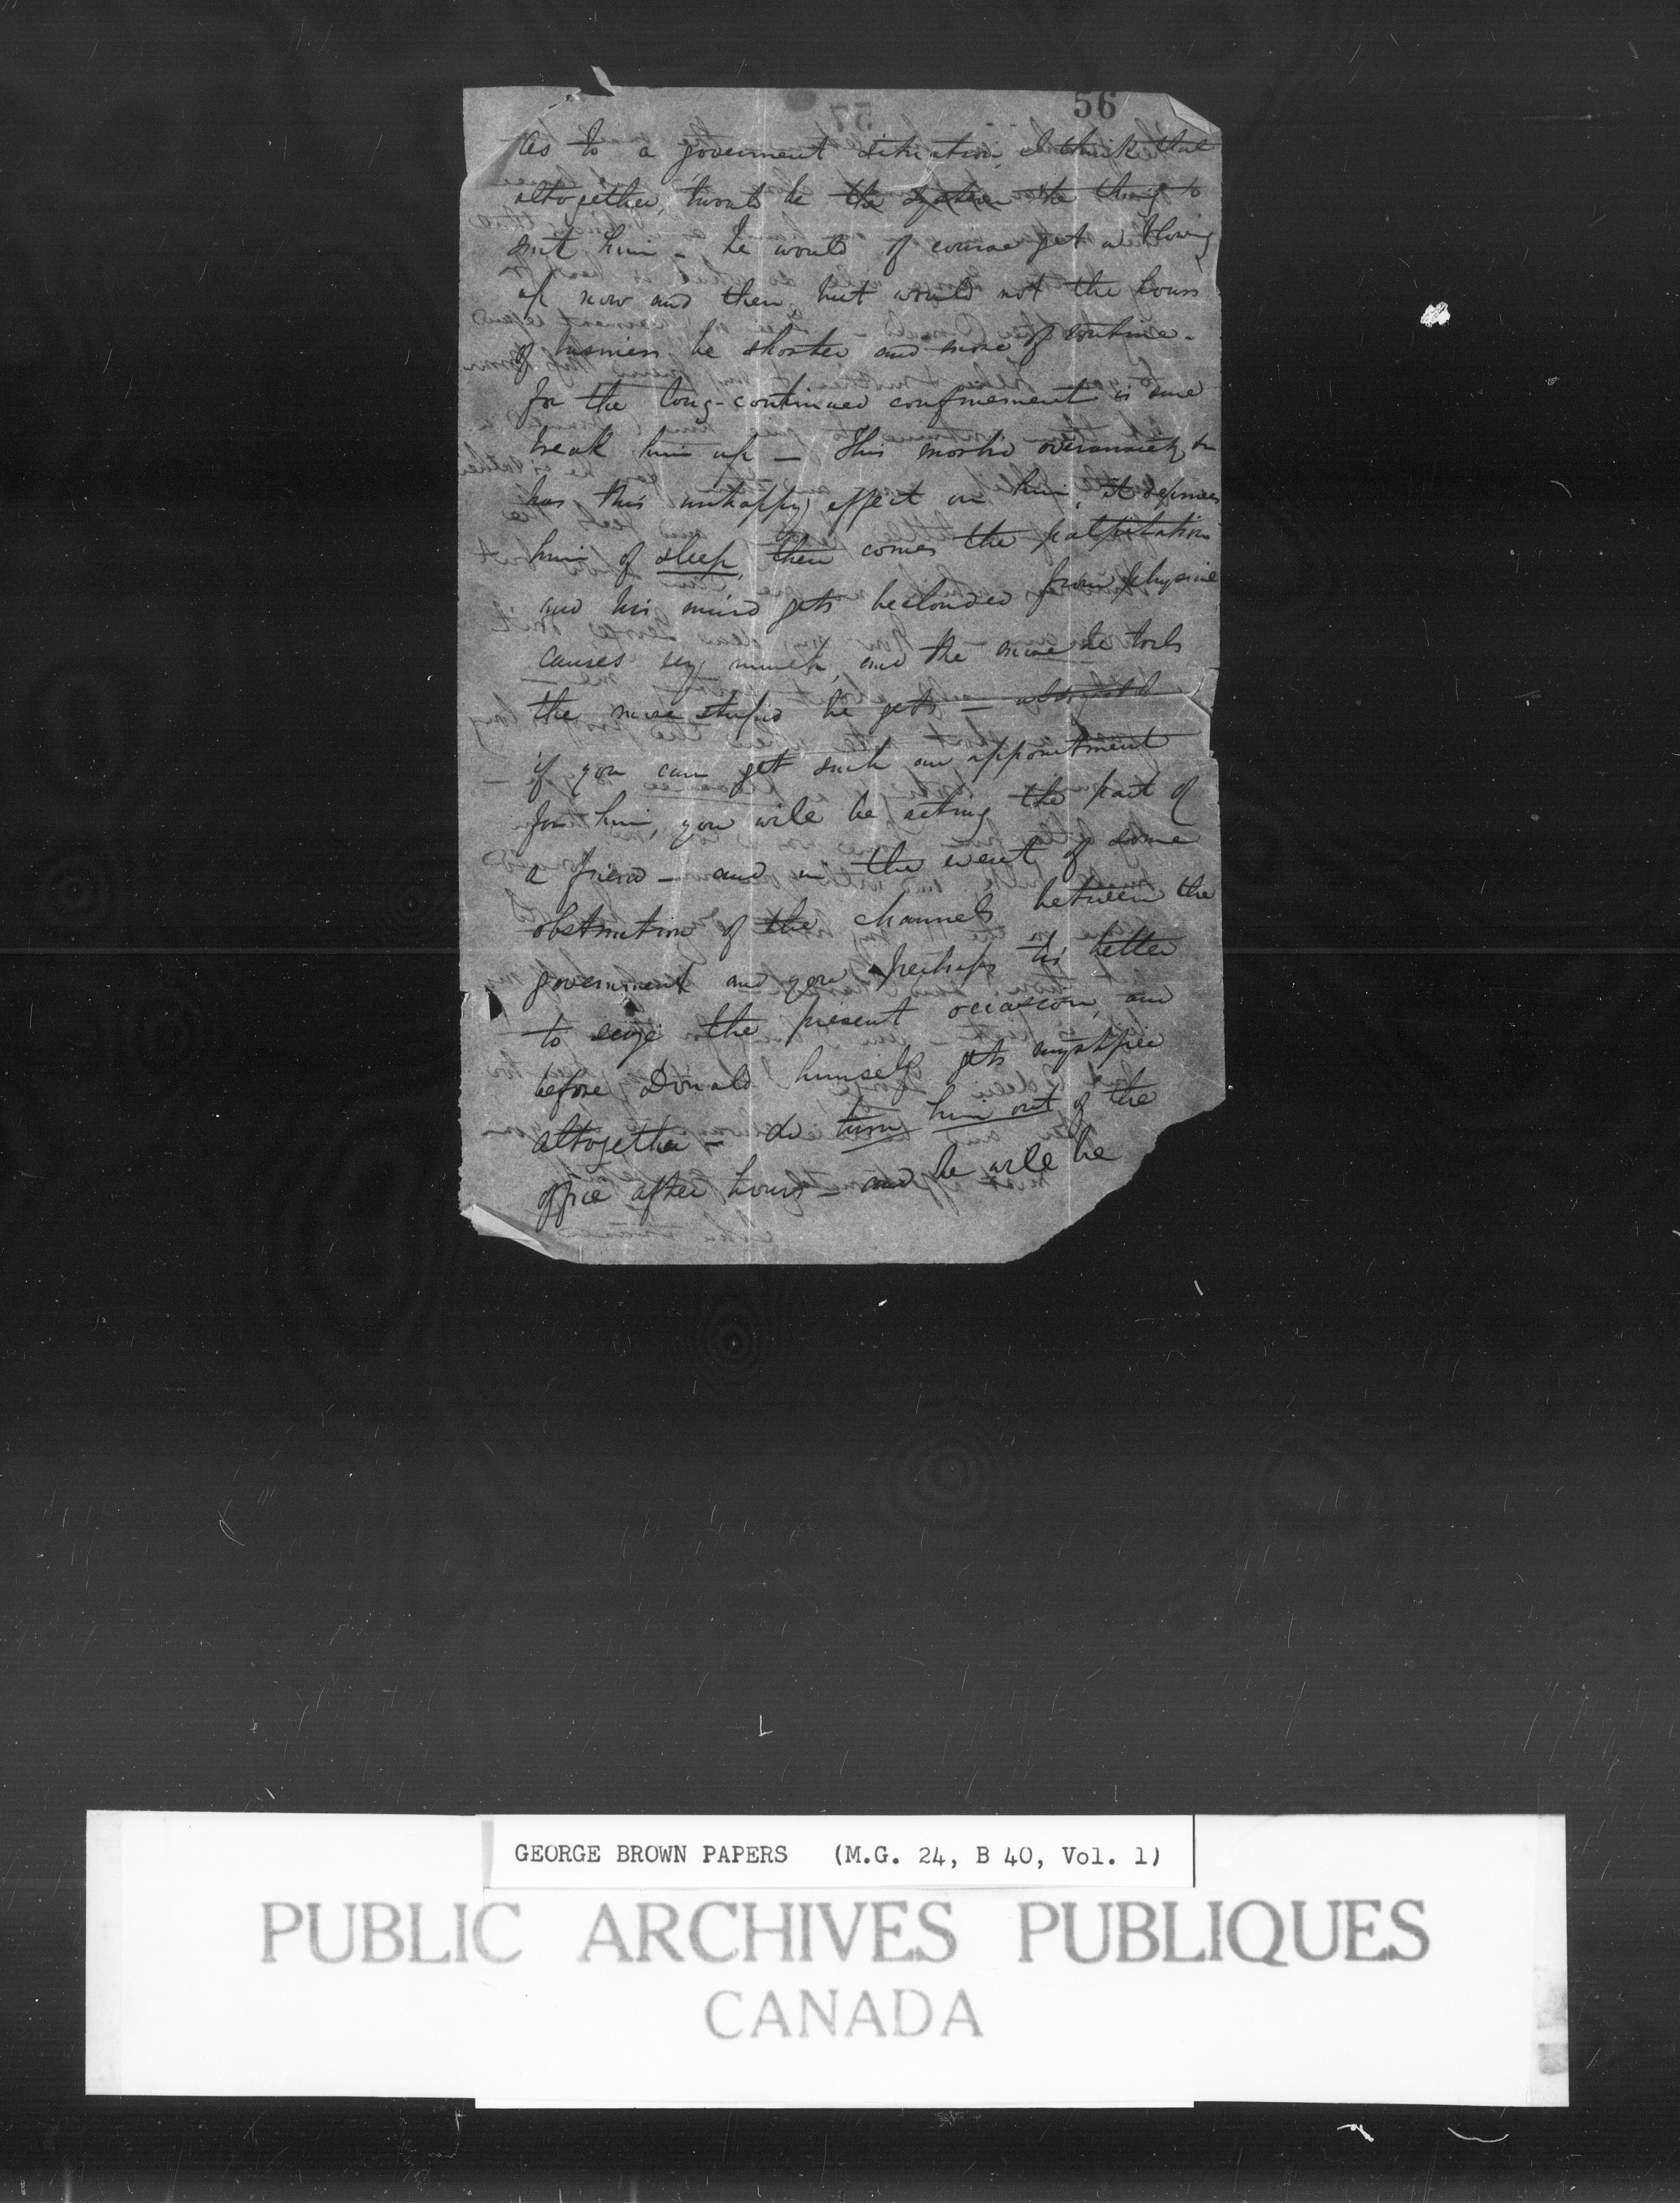 56
As to a goverment situation, I think that
altogether, twould be the system the thing to
suit him - he would of course get a blowing
up now and then, but would not the hours
of business be shorter and more of routine -
for the long-continued confinement is sure
break him up - This morbid overanxiety
has this unhappy effect on him, it deprives
him of sleep, then comes the palpitation
and his mind gets beclouded from physical
causes very much, and the more he toils
the more stupid he gets -
if you can get such an appointment
for him, you will be acting the part of
a friend - and in the event of some
obstruction of the channels between the
government and you perhaps tis better
to seize the present occasion, and
before Donald himself gets mystified
altogether - do turn him out of the
office after hours - and he will be
GEORGE BROWN PAPERS (M.G. 24, B 40, Vol. 1)
PUBLIC ARCHIVES PUBLIQUES
CANADA